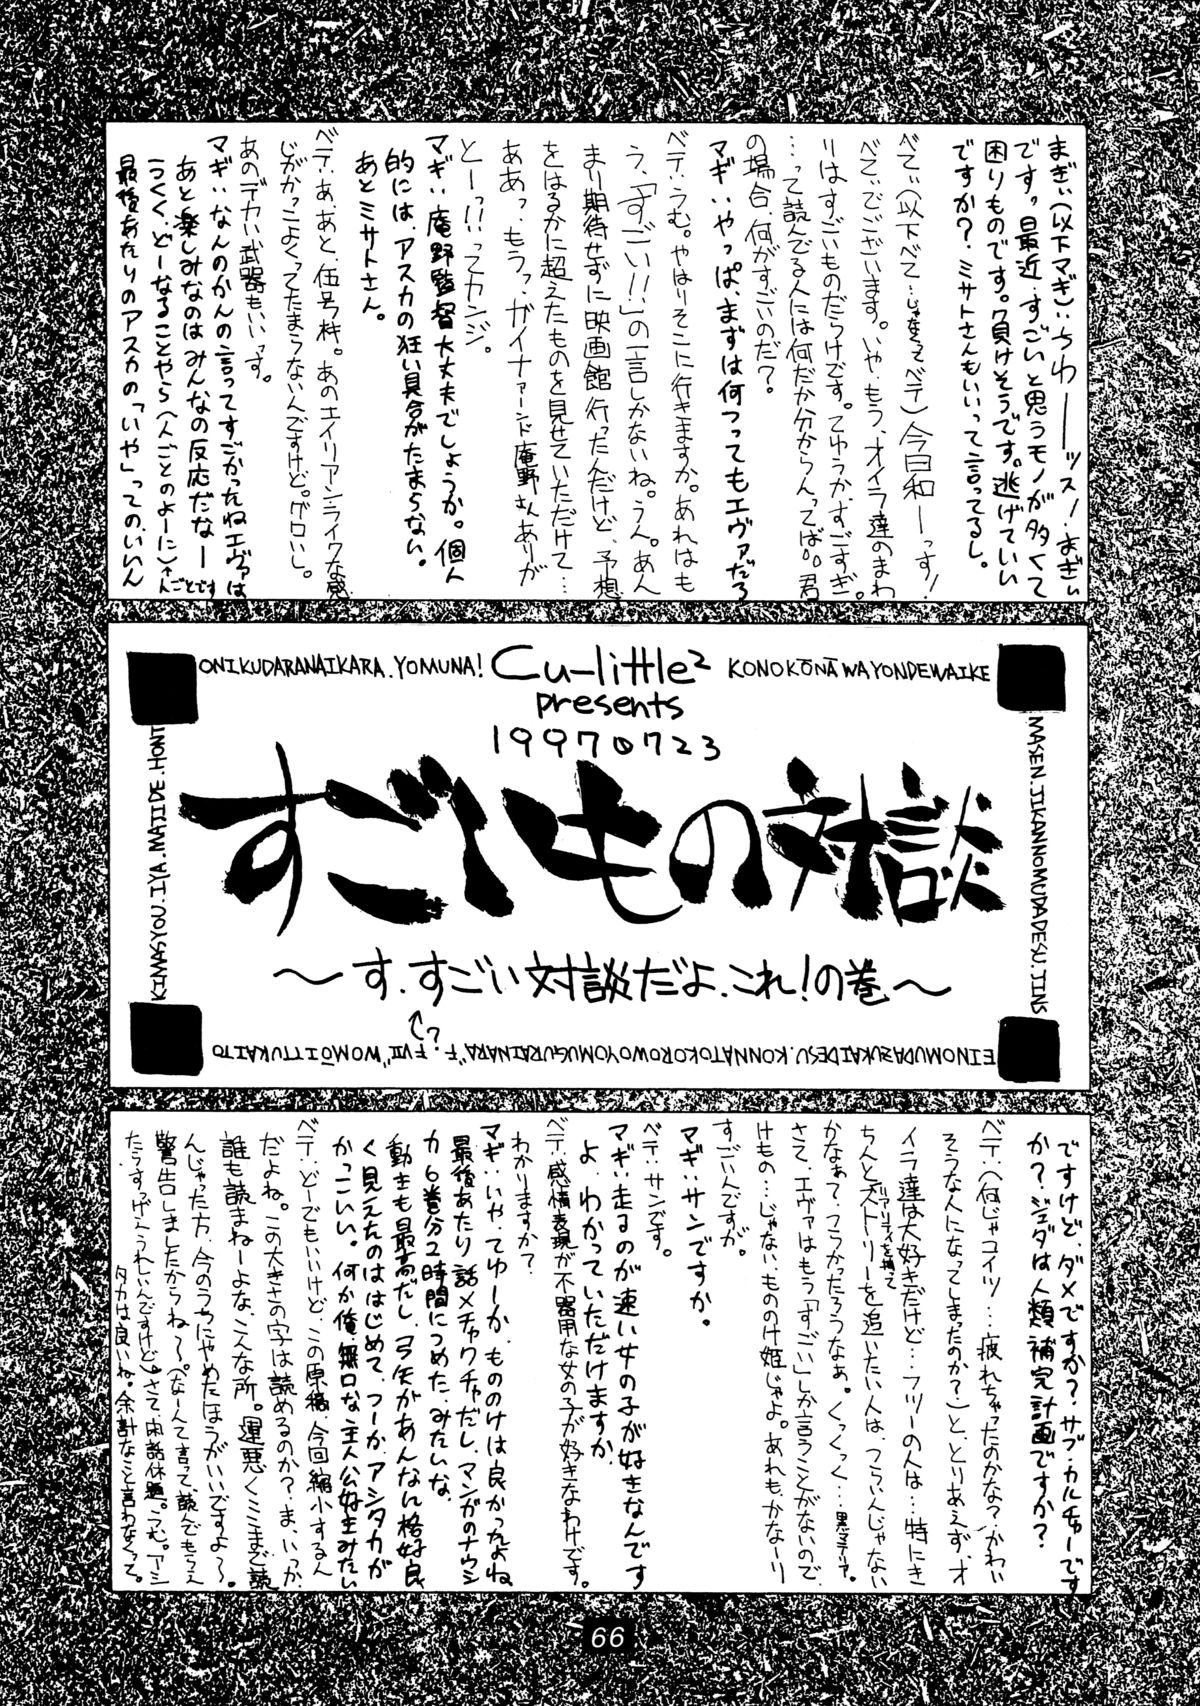 まぎぃ(以下マギ)ぃちわーーッス!まぎぃ
です。最近、すごいと思うモノが多くて
困りものです。負けそうです。逃げていい
ですか?ミサトさんもいいって言ってるし。
べてぃ(以下べて…じゃなくってベテ)今日和ーっす!
べてぃでございます。いや、もう、オイラ達のまわ
りはすごいものだらけです。てゆうか、すごすぎ。
…って読んでる人には何だか分からんってば。君
の場合、何がすごいのだ?
マギ:いやっぱまずは何つってもエヴァだろ
ベテ:うむ。やはりそこに行きますか。あれはも
う、「すごい!!」の一言しかないね。うん。あん
まり期待せずに映画館行ったんだけど、予想
をはるかに超えたものを見せていただけて…
ああっ、もうっ、ガイナァーンド庵野さんありが
とーっ!!ってカンジ。
マギ:庵野監督大丈夫でしょうか。個人
的には、アスカの狂い具合がたまらない。
あとミサトさん。
ベテ:あ、あと、伍号機。あのエイリアンライクな感
じがかっこよくってたまらないんですけど。グロいし。
あのデカい武器もいいっす。
マギ:なんのかんの言ってすごかったねエヴァは
あと楽しみなのはみんなの反応だなー
つくく、どーなることやら(人ごとのよーに)
最後あたりのアスカの「いや」ってのいいん
ONIKUDARANAIKARA.YOMUNA!
Cu-little²
KONOKŌNĀ WAYONDEWAIKE
presents
19970723
MASEN.JIKANNOMUDADESU.JINS
すごいもの対談
〜す、すごい対談だよ、これ!の巻〜
?
EINOMUDAZUKAIDESU.KONNATOKOROWOYOMUGURAINARA"F.FVII"WOMŌITTUKAITO
KINASYOU.IYA.MAJIDE.HONT
ですけど、ダメですか?サブ・カルチャーです
か?ジェダは人類補完計画ですか?
ベテ:(何じゃコイツ…疲れちゃったのかな?かわい
そうな人になってしまったのか?)と、とりあえず、オ
イラ達は大好きだけど…フツーの人は…特にき
ちんとストーリーを追いたい人は、つらいんじゃない
かなぁて、つらかったろうなぁ。くっくっく…
さて、エヴァはもう「すごい」しか言うことがないので、
けもの…じゃない、もののけ姫じゃよ。あれもかなーり
すごいんですが。
マギ:サンですか。
ベテ:サンです。
マギ:走るのが速い女の子が好きなんです
よ、わかっていただけますか。
ベテ:感情表現が不器用な女の子が好きなわけです。
わかりますか?
マギ:いや、てゆーか、もののけは良かったよね
最後あたり話メチャクチャだし、マンガのナウシ
カ6巻分2時間につめた、みたいな。
動きも最高だし、弓矢があんなに格好良
く見えたのははじめて。つーか、アシタカが
かっこいい。何か俺無口な主人公好きみたい
ベテ:どーでもいいけど、この原稿、今回縮小するん
だよね。この大きさの字は読めるのか?ま、いっか。
誰も読まねーよな、こんな所。運悪くここまで読
んじゃった方、今のうちにやめたほうがいいですよ〜。
警告しましたからね〜ぺなーんて言って読んでもらえ
たらすっげーうれしいんですけど。さて、閑話休題。うむ。アシ
タカは良いね。余計なこと言わなくって。
66